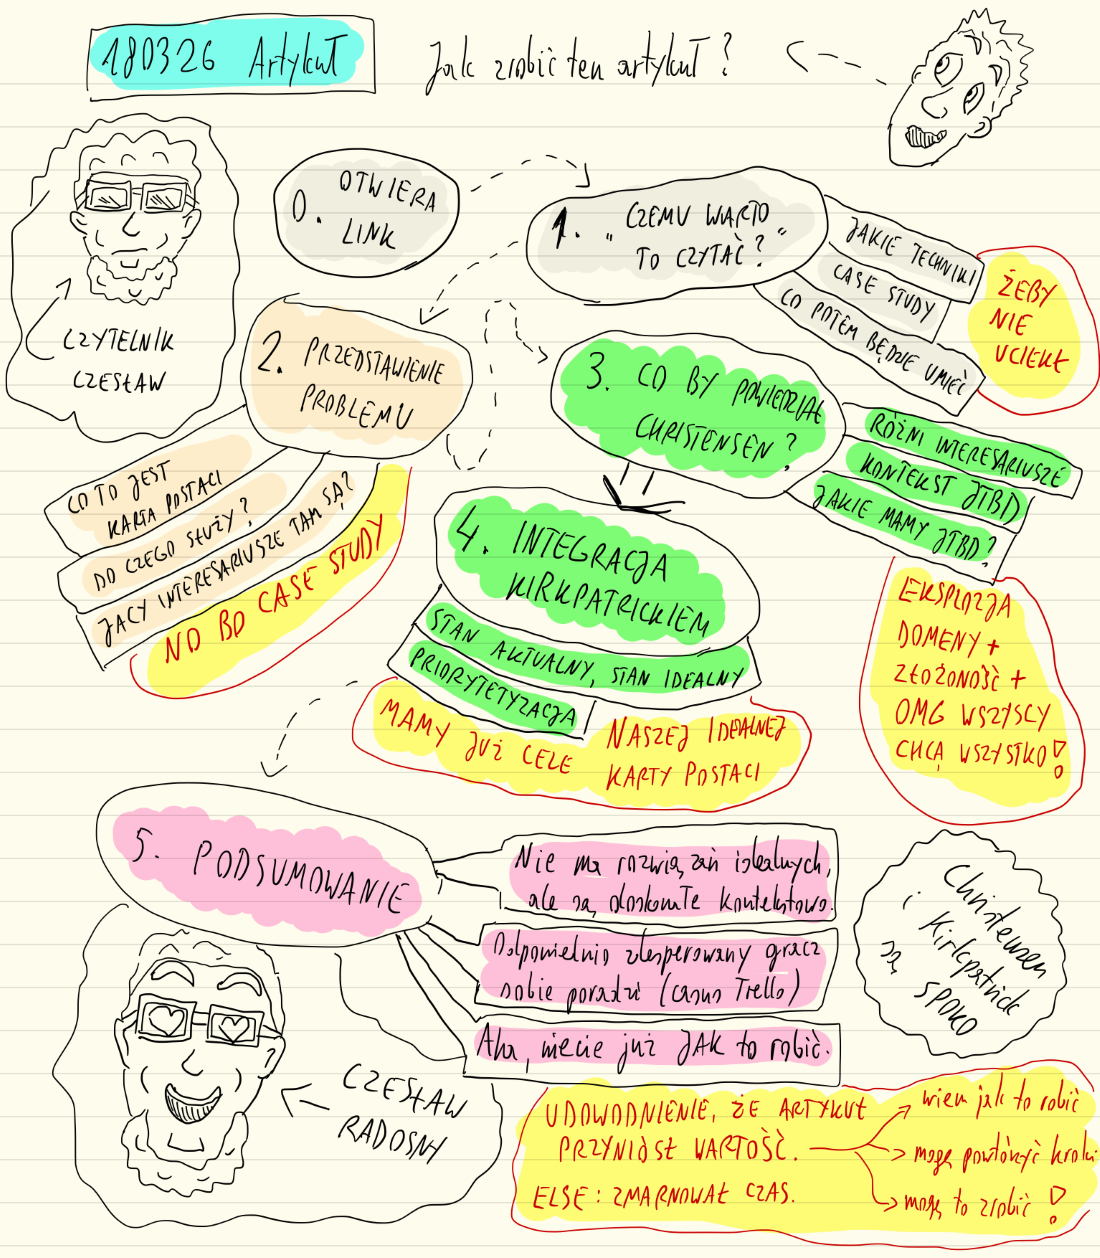 180326 Artykuł
Jak zrobić ten artykuł?
CZYTELNIK
CZESŁAW
0. OTWIERA
LINK
1. "CZEMU WARTO
TO CZYTAĆ?"
JAKIE TECHNIKI
CASE STUDY
CO POTEM BĘDZIE UMIEĆ
ŻEBY
NIE
UCIEKŁ
2. PRZEDSTAWIENIE
PROBLEMU
CO TO JEST
KARTA POSTACI
DO CZEGO SŁUŻY?
JACY INTERESARIUSZE TAM SĄ?
NO BO CASE STUDY
3. CO BY POWIEDZIAŁ
CHRISTENSEN?
RÓŻNI INTERESARIUSZE
KONTEKST JTBD
JAKIE MAMY JTBD?
EKSPLOZJA
DOMENY +
ZŁOŻONOŚĆ +
OMG WSZYSCY
CHCĄ WSZYSTKO!
4. INTEGRACJA
KIRKPATRICKIEM
STAN AKTUALNY, STAN IDEALNY
PRIORYTETYZACJA
MAMY JUŻ CELE NASZEJ IDEALNEJ
KARTY POSTACI
5. PODSUMOWANIE
Nie ma rozwiązań idealnych,
ale są doskonałe kontekstowo.
Odpowiednio zdesperowany gracz
sobie poradzi (casus Trello)
Aha, wiecie już JAK to robić.
Christensen
i Kirkpatrick
są SPOKO
CZESŁAW
RADOSNY
UDOWODNIENIE, ŻE ARTYKUŁ
PRZYNIÓSŁ WARTOŚĆ.
ELSE: ZMARNOWAŁ CZAS.
wiem jak to robić
mogę powtórzyć kroki
mogę to zrobić!